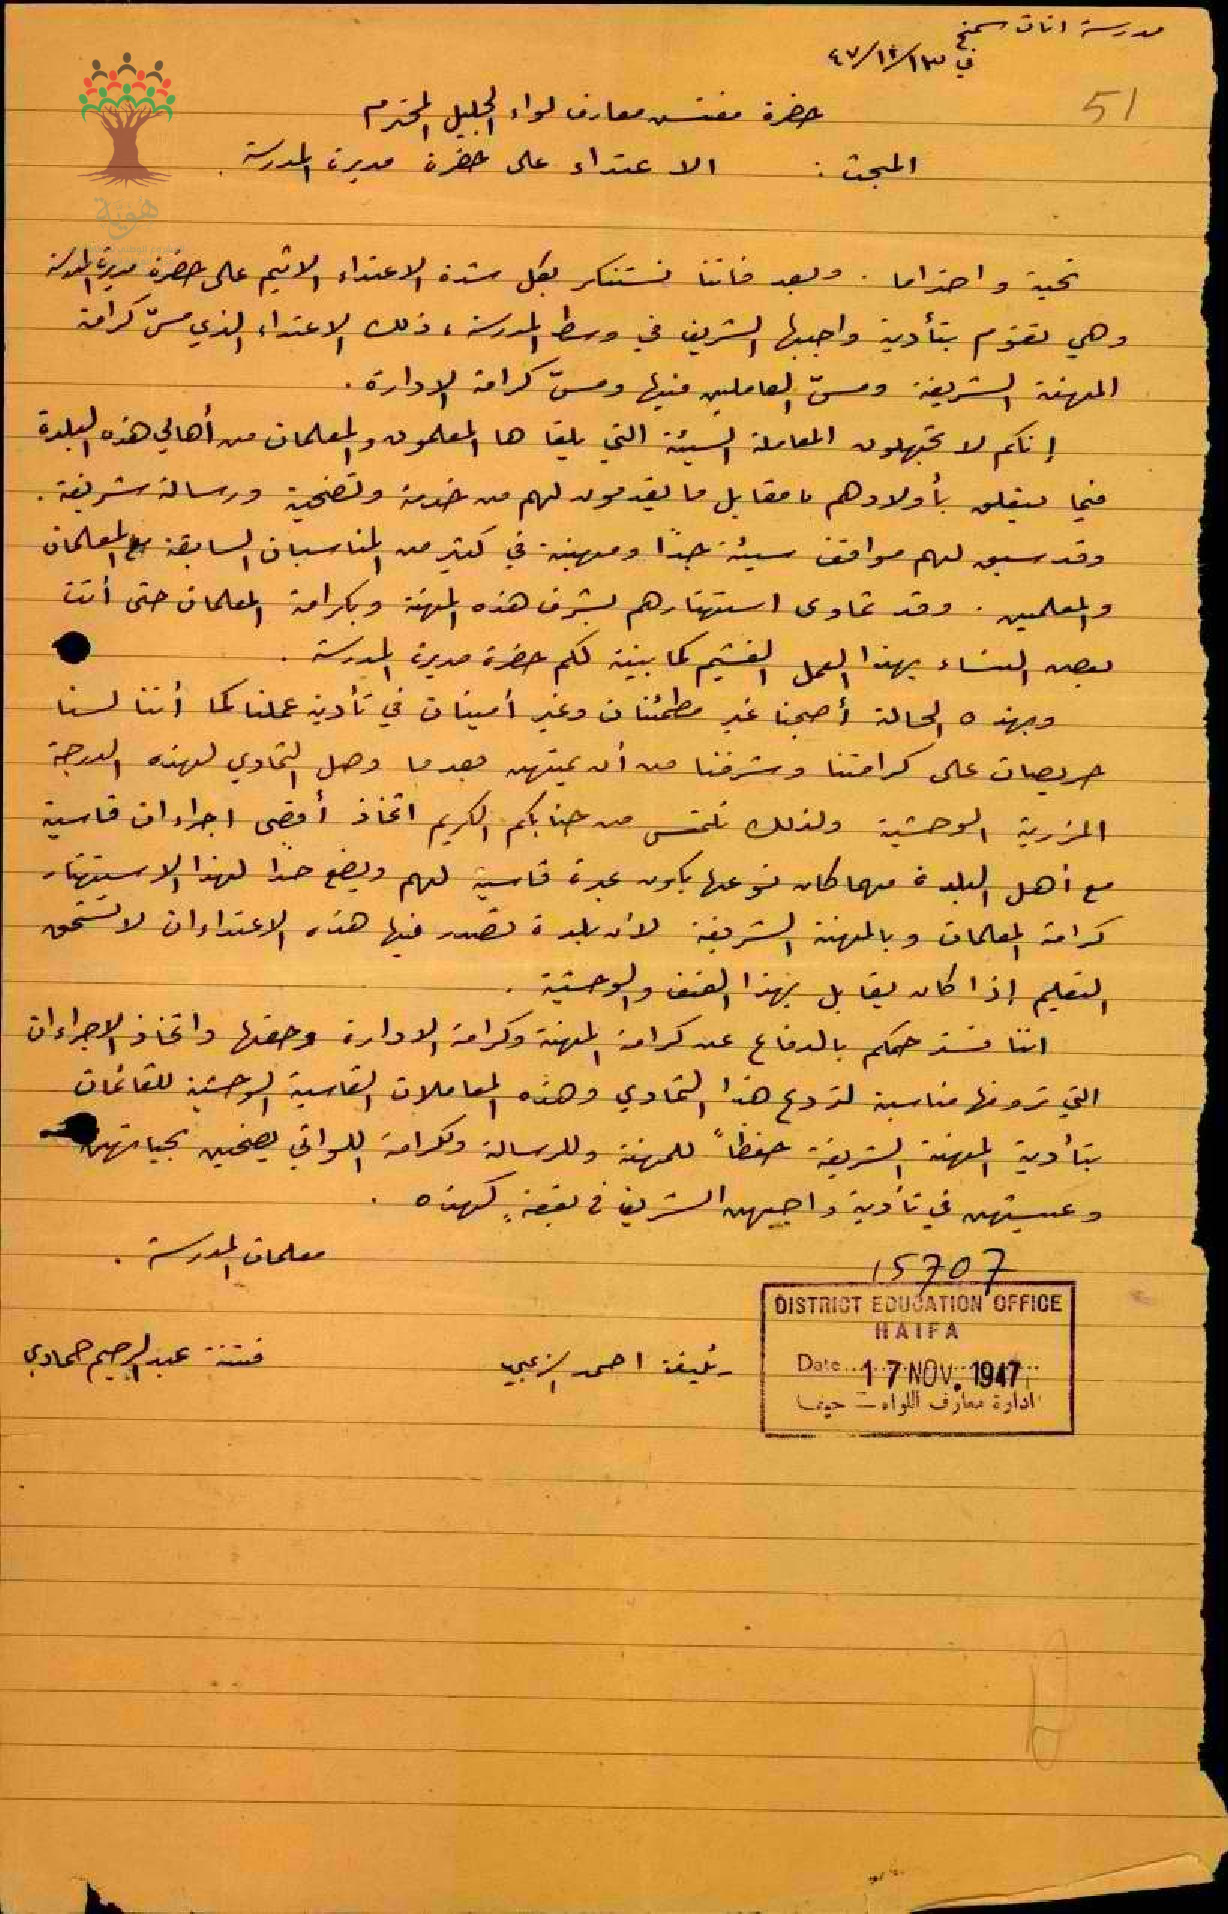 مدرسة اناث سمخ
في ١٣/١٢/٤٧
51
حضرة مفتش معارف لواء الجليل المحترم
المبحث : الاعتداء على حضرة مديرة المدرسة .
هوية
تحية و احتراما . وبعد فاننا نستنكر بكل شدة الاعتداء الاثيم على حضرة مديرة المدرسة
وهي تقوم بتأدية واجبها الشريف في وسط المدرسة ، ذلك الاعتداء الذي مسّ كرامة
المهنة الشريفة ومسّ العاملين فيها ومسّ كرامة الادارة .
إنكم لا تجهلون المعاملة السيئة التي يلقاها المعلمون والمعلمات من أهالي هذه البلدة
فيما يتعلق بأولادهم مقابل ما يقدمون لهم من خدمة وتضحية ورسالة شريفة .
وقد سبق لهم مواقف سيئة جدًا ومهينة في كثير من المناسبات السابقة مع المعلمات
والمعلمين . وقد تمادى استهتارهم بشرف هذه المهنة وبكرامة المعلمات حتى أتت
بعض النساء بهذا العمل الغشيم كما بينته لكم حضرة مديرة المدرسة .
وبهذه الحالة أصبحنا غير مطمئنات وغير أمينات في تأدية عملنا كما أننا لسنا
حريصات على كرامتنا وشرفنا من أن يمتهن بعدما وصل التمادي لهذه الدرجة
المزرية الوحشية ولذلك نلتمس من جنابكم الكريم اتخاذ أقصى اجراءات قاسية
مع أهل البلدة مهما كان نوعها يكون عبرة قاسية لهم ويضع حدًا لهذا الاستهتار
كرامة المعلمات وبالمهنة الشريفة لأن بلدة تصدر فيها هذه الاعتداءات لا تستحق
التعليم إذا كان يقابل بهذا العنف والوحشية .
اننا نسترحمكم بالدفاع عن كرامة المهنة وكرامة الادارة وحقها واتخاذ الاجراءات
التي ترونها مناسبة لتردع هذا التمادي وهذه المعاملات القاسية الوحشية للقائمات
بتأدية المهنة الشريفة حفظاً للمهنة وللرسالة ولكرامة اللواتي يضحين بحياتهن
وعيشتهن في تأدية واجبهن الشريف في بقعةٍ كهذه .
معلمات المدرسة .
رئيفة احمد الزعبي
فتنة عبد الرحيم حمادي
15707
DISTRICT EDUCATION OFFICE
HAIFA
Date 17 NOV. 1947
ادارة معارف اللواء – حيفا